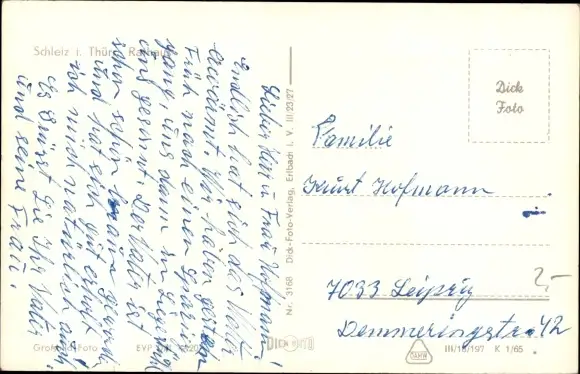 Schleiz i. Thür. Rathaus
Lieber Herr u. Frau Hofmann!
Endlich hat sich das Wetter
erwärmt. Wir haben gestern
Früh nach einen Spazier
gang, uns dann in Liegestuhl
uns gesonnt Der Vater ist
schon schön braun geworden
und hat sich gut erholt
ich mich natürlich auch,
Es Grüsst Sie Ihr Vater
und seine Frau.
Großfoto
EVP
Nr. 3168 Dick-Foto-Verlag, Erlbach i. V. III 23 27
Dick
Foto
Familie
Kurt Hofmann
7033 Leipzig
Demmeringstr. 42
2,-
III/18/197 K 1/65